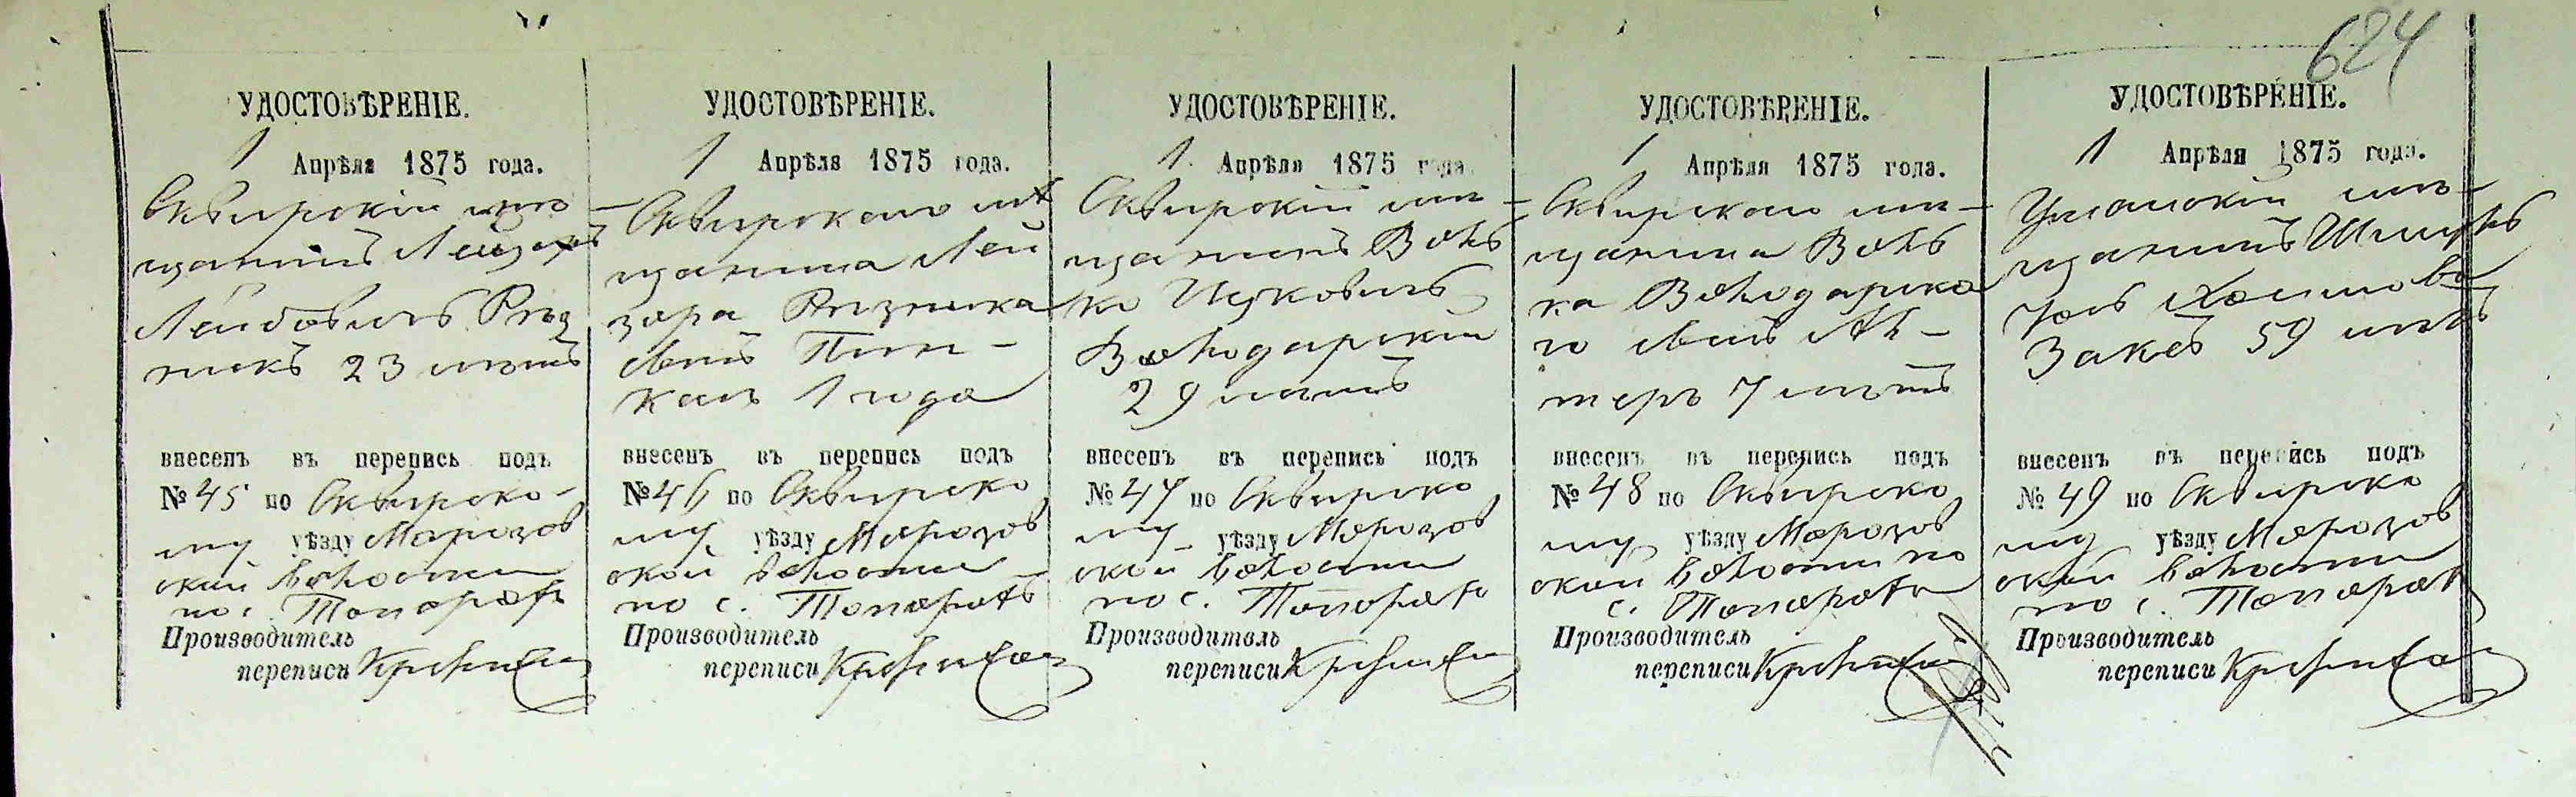 624
УДОСТОВѢРЕНІЕ.
1 Апрѣля 1875 года.
Сквирскій мѣ
щанинъ Лейзоръ
Лейбовичъ Рѣз
никъ 23 лѣтъ
внесенъ въ перепись подъ
№ 45 по Сквирско-
му уѣзду Морозов
ской волости
по с. Топорахъ
Производитель
переписи
УДОСТОВѢРЕНІЕ.
1 Апрѣля 1875 года.
Сквирскаго мѣ
щанина Лей
зора Рѣзника
сынъ Пин-
хасъ 1 года
внесенъ въ перепись подъ
№ 46 по Сквирско
му уѣзду Морозов
ской волости
по с. Топорахъ
Производитель
переписи
УДОСТОВѢРЕНІЕ.
1 Апрѣля 1875 года.
Сквирскій мѣ-
щанинъ Воль
ко Ицковичъ
Володарскій
29 лѣтъ
внесенъ въ перепись подъ
№ 47 по Сквирско
му уѣзду Морозов
ской волости
по с. Топорахъ
Производитель
переписи
УДОСТОВѢРЕНІЕ.
1 Апрѣля 1875 года.
Сквирскаго мѣ-
щанина Воль
ка Володарска
го сынъ
7 лѣтъ
внесенъ въ перепись подъ
№ 48 по Сквирско
му уѣзду Морозов
ской волости по
с. Топорахъ
Производитель
переписи
УДОСТОВѢРЕНІЕ.
1 Апрѣля 1875 года.
Уманскій мѣ-
щанинъ
Заксъ 59 лѣтъ
внесенъ въ перепись подъ
№ 49 по Сквирско
му уѣзду Морозов
ской волости
по с. Топорахъ
Производитель
переписи